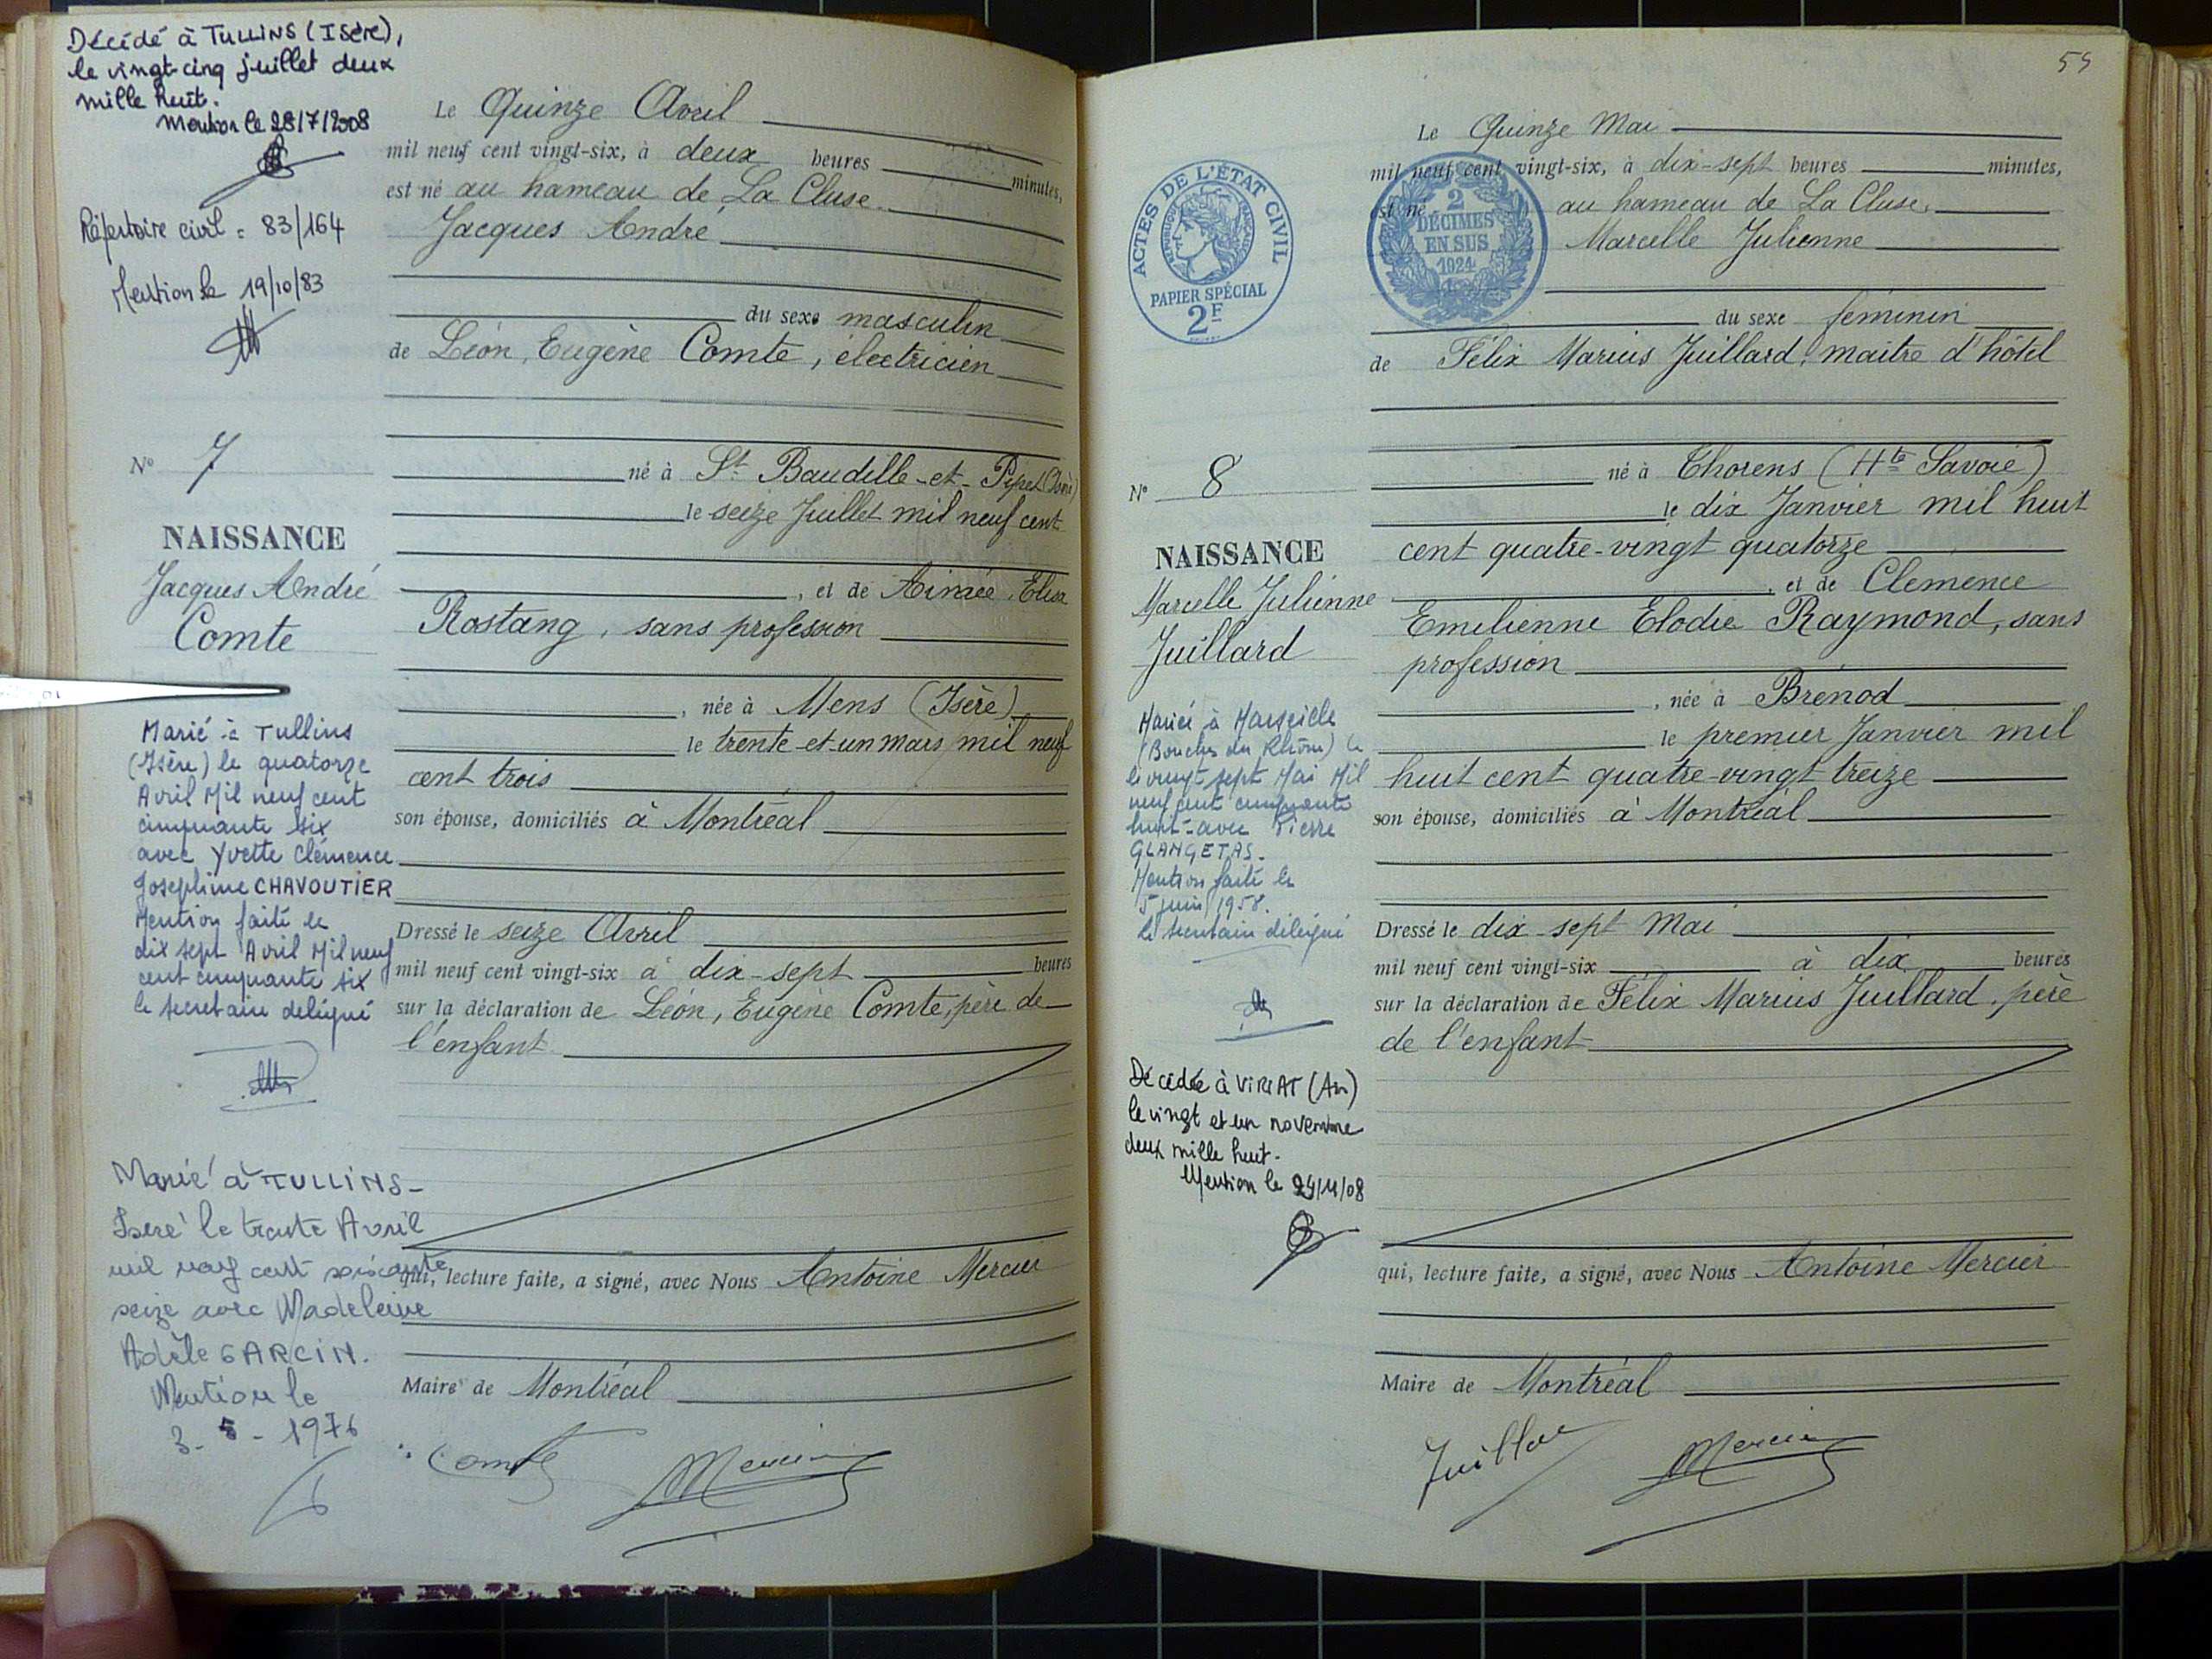 Décédé à TULLINS (Isère),
le vingt-cinq juillet deux
mille huit.
Mention le 28/7/2008
Répertoire civil = 83/164
Mention le 19/10/83
N° 7
NAISSANCE
Jacques André
Comte
Marié à Tullins
(Isère) le quatorze
Avril Mil neuf cent
cinquante six
avec Yvette Clémence
Joséphine CHAVOUTIER
Mention faite le
dix sept Avril Mil neuf
cent cinquante six
le secretaire délégué
Marié à TULLINS-
Isère le trente Avril
mil neuf cent soixante
seize avec Madeleine
Adèle GARCIN.
Mention le
3-5-1976
Le Quinze Avril
mil neuf cent vingt-six, à deux heures minutes,
est né au hameau de La Cluse.
Jacques André
du sexe masculin
de Léon, Eugène Comte, électricien
né à St Baudille-et-Pipet (Isère)
le seize Juillet mil neuf cent
, et de Aimée, Elisa
Rostang, sans profession
, née à Mens (Isère)
le trente-et-un mars mil neuf
cent trois
son épouse, domiciliés à Montréal
Dressé le seize Avril
mil neuf cent vingt-six à dix-sept heures
sur la déclaration de Léon, Eugène Comte, père de
l'enfant
qui, lecture faite, a signé, avec Nous Antoine Mercier
Maire de Montréal
Comte Mercier
55
ACTES DE L'ÉTAT CIVIL
RÉPUBLIQUE FRANÇAISE
PAPIER SPÉCIAL
2F
2
DÉCIMES
EN SUS
1924
N° 8
NAISSANCE
Marcelle Julienne
Juillard
Mariée à Marseille
(Bouches du Rhône) le
le vingt sept Mai Mil
neuf cent cinquante
huit - avec Pierre
GLANGETAS.
Mention faite le
5 juin 1958.
le secretaire délégué
Décédée à VIRIAT (Ain)
le vingt et un novembre
deux mille huit-
Mention le 24/11/08
Le Quinze Mai
mil neuf cent vingt-six, à dix-sept heures minutes,
est né au hameau de La Cluse,
Marcelle Julienne
du sexe féminin
de Félix Marius Juillard, maitre d'hôtel
né à Thorens (Hte Savoie)
le dix Janvier mil huit
cent quatre-vingt quatorze
, et de Clemence
Emilienne Elodie Raymond, sans
profession
, née à Brenod
le premier Janvier mil
huit cent quatre-vingt treize
son épouse, domiciliés à Montréal
Dressé le dix-sept Mai
mil neuf cent vingt-six à dix heures
sur la déclaration de Félix Marius Juillard, père
de l'enfant
qui, lecture faite, a signé, avec Nous Antoine Mercier
Maire de Montréal
Juillard Mercier